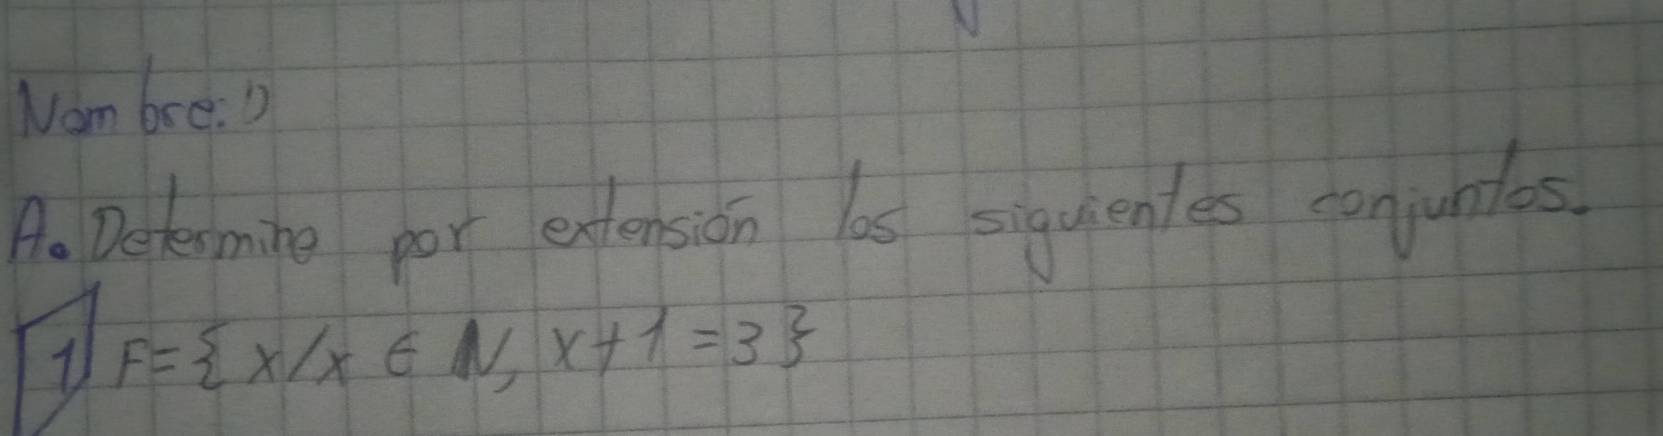 Nombre:
A. Determine por extensión los siguientes conjuntos.
1) F={x/x ∈ N, x+1=3}